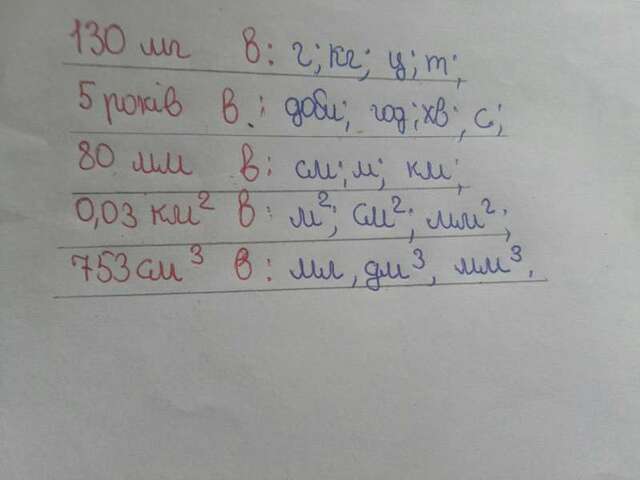 130 мг в: г; кг; ц; т;
5 років в: доби; год; хв; с;
80 мм в: см; м; км;
0,03 км² в: м²; см²; мм²;
753 см³ в: мл, дм³, мм³.